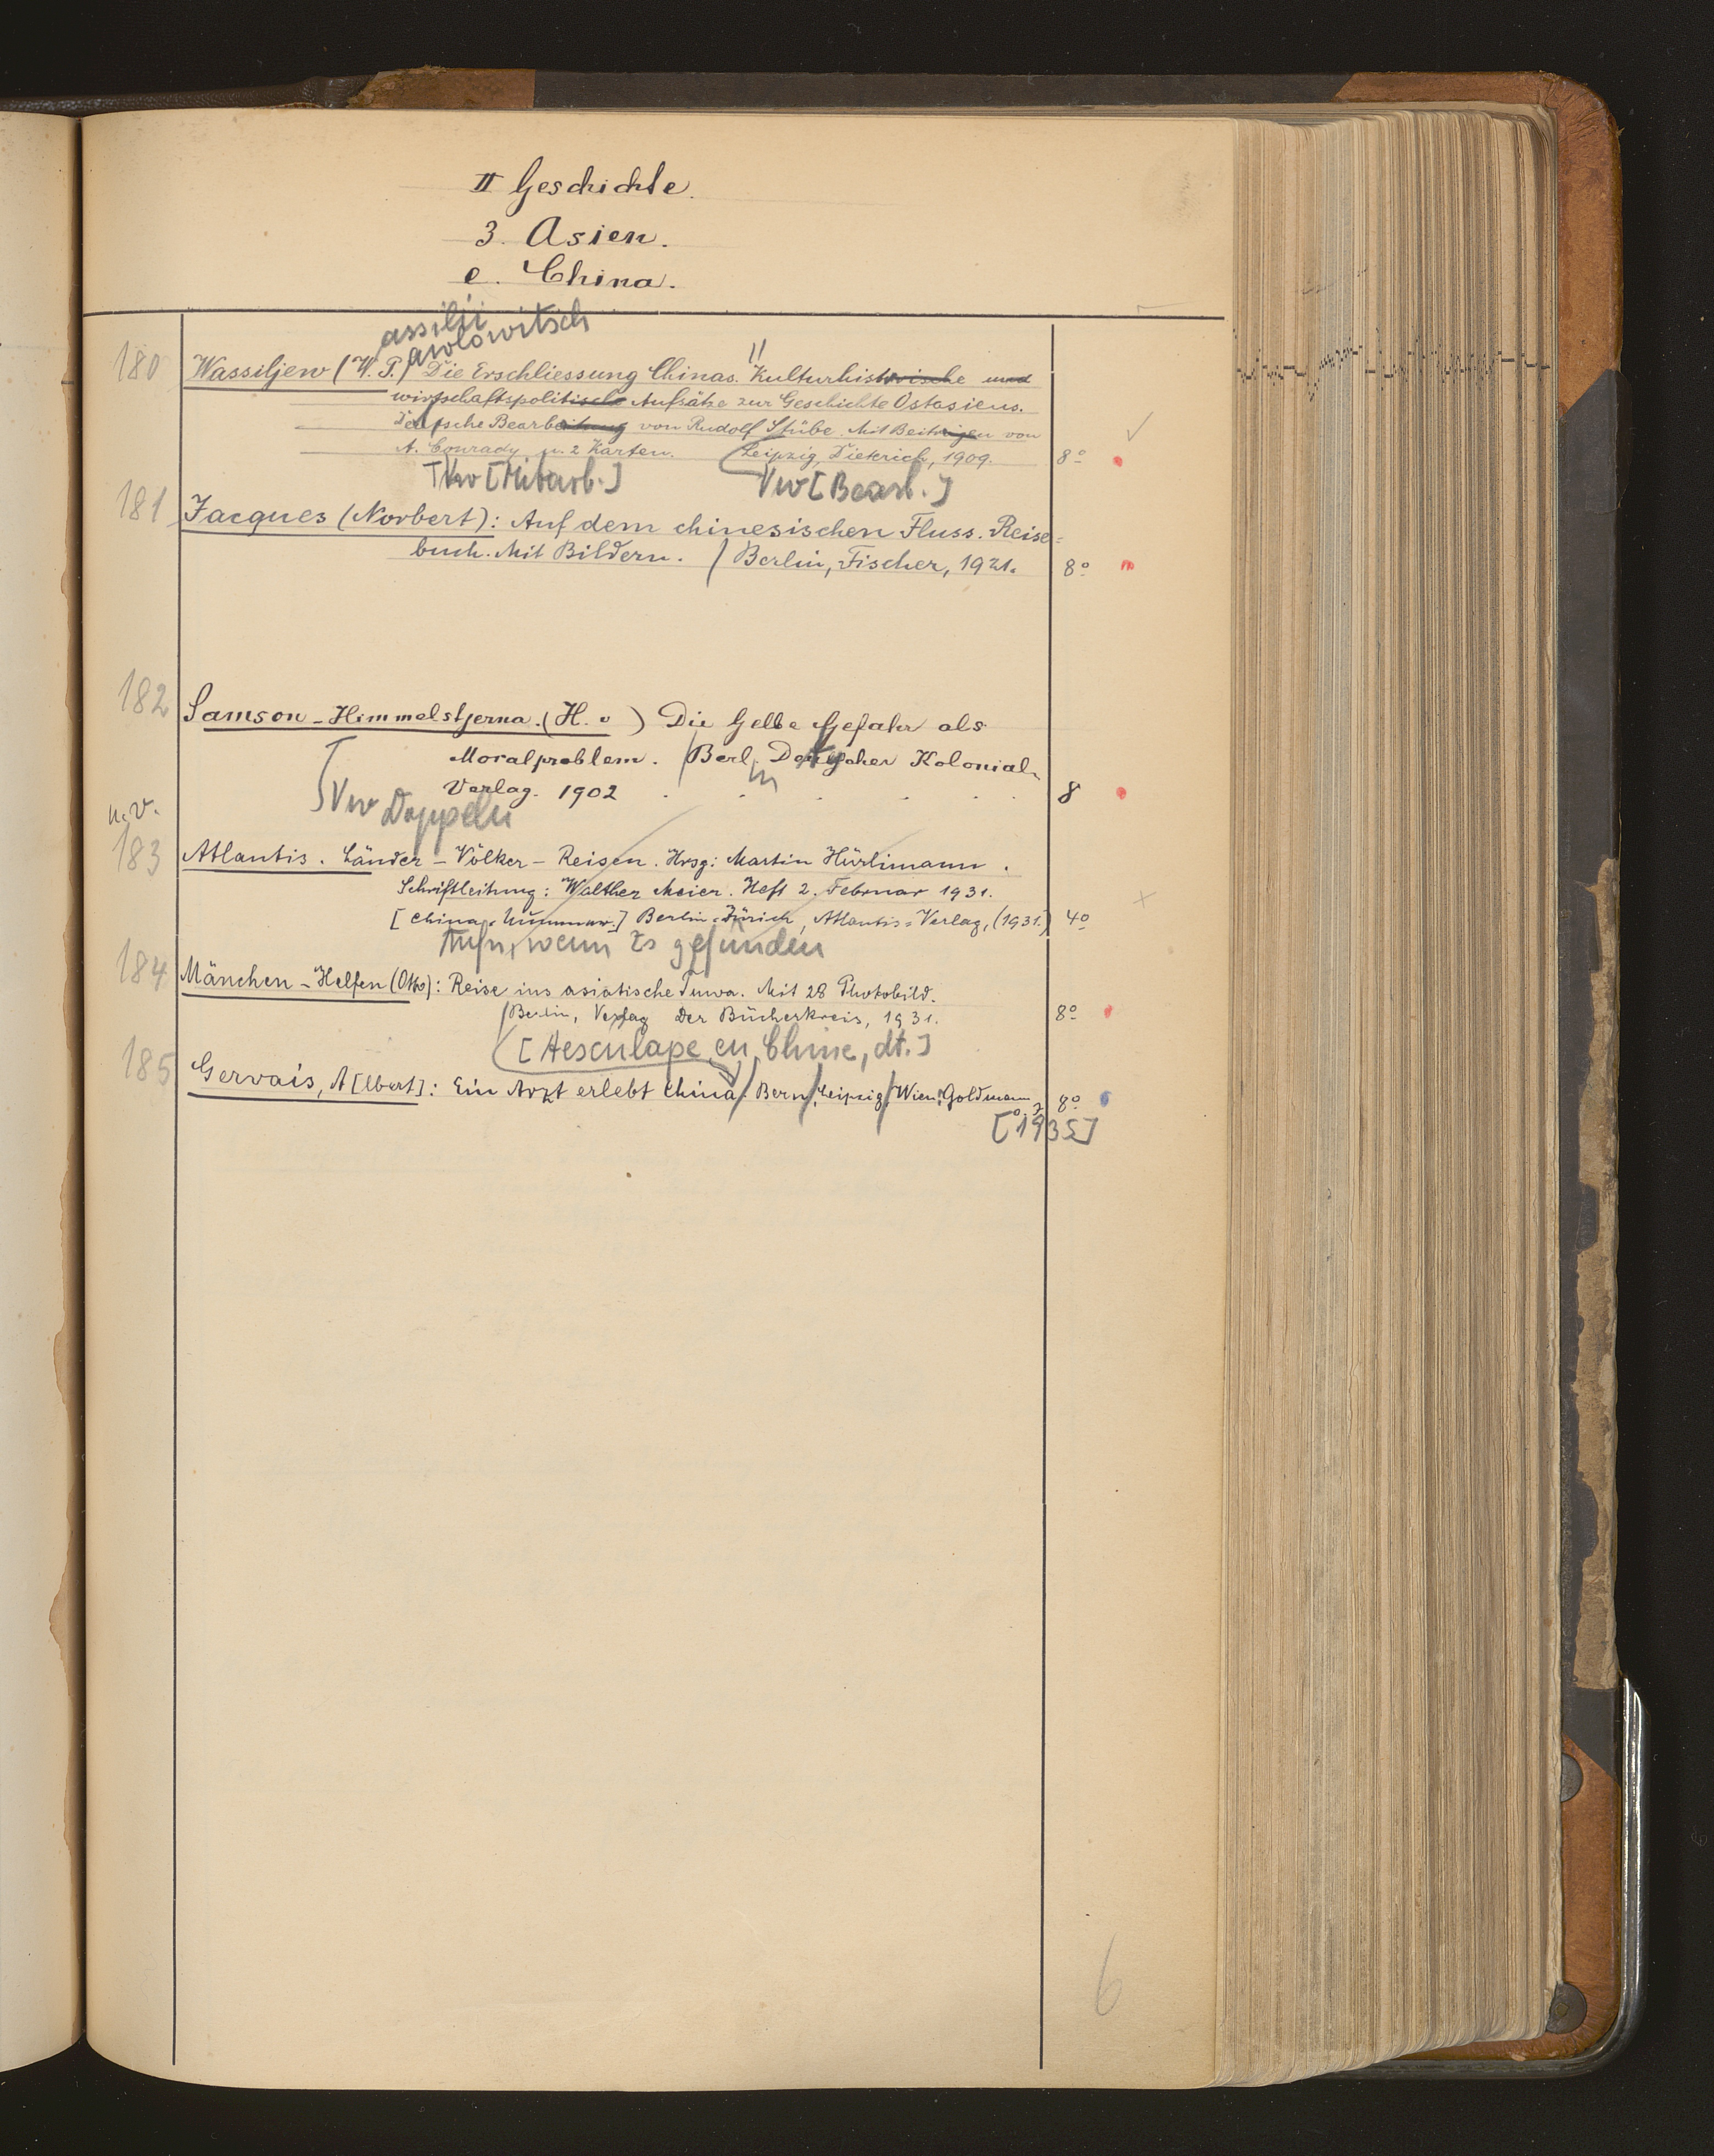 II Geschichte.
3. Asien.
e. China.
assilij
awlowitsch
180 Wassiljew (W. P.) Die Erschliessung Chinas. Kulturhistorische und
wirtschaftspolitische Aufsätze zur Geschichte Ostasiens.
Deutsche Bearbeitung von Rudolf Stübe. Mit Beiträgen von
A. Conrady u. 2 Karten. Leipzig, Dieterich, 1909. 8º
Vw [Mitarb.] Vw [Bearb.]
181 Jacques (Norbert): Auf dem chinesischen Fluss. Reise=
buch. Mit Bildern. / Berlin, Fischer, 1921. 8º
182 Samson-Himmelstjerna. (H. v ) Die Gelbe Gefahr als
Moralproblem. / Berl. Deutscher Kolonial-
in
Verlag. 1902 . . . . . 8
Vw Doppeln
n.v.
183 Atlantis. Länder – Völker – Reisen. Hrsg: Martin Hürlimann.
Schriftleitung: Walther Meier. Heft 2. Februar 1931.
[China-Nummer.] Berlin-Zürich, Atlantis-Verlag, (1931.) 4º
Aufn, wenn Zs gefunden
184 Mänchen-Helfen (Otto): Reise ins asiatische Tuwa. Mit 28 Photobild.
/ Berlin, Verlag Der Bücherkreis, 1931. 8º
[Aesculape en Chine, dt.]
185 Gervais, A[lbert]: Ein Arzt erlebt China / Bern / Leipzig / Wien: Goldmann 8º
[1935]
6